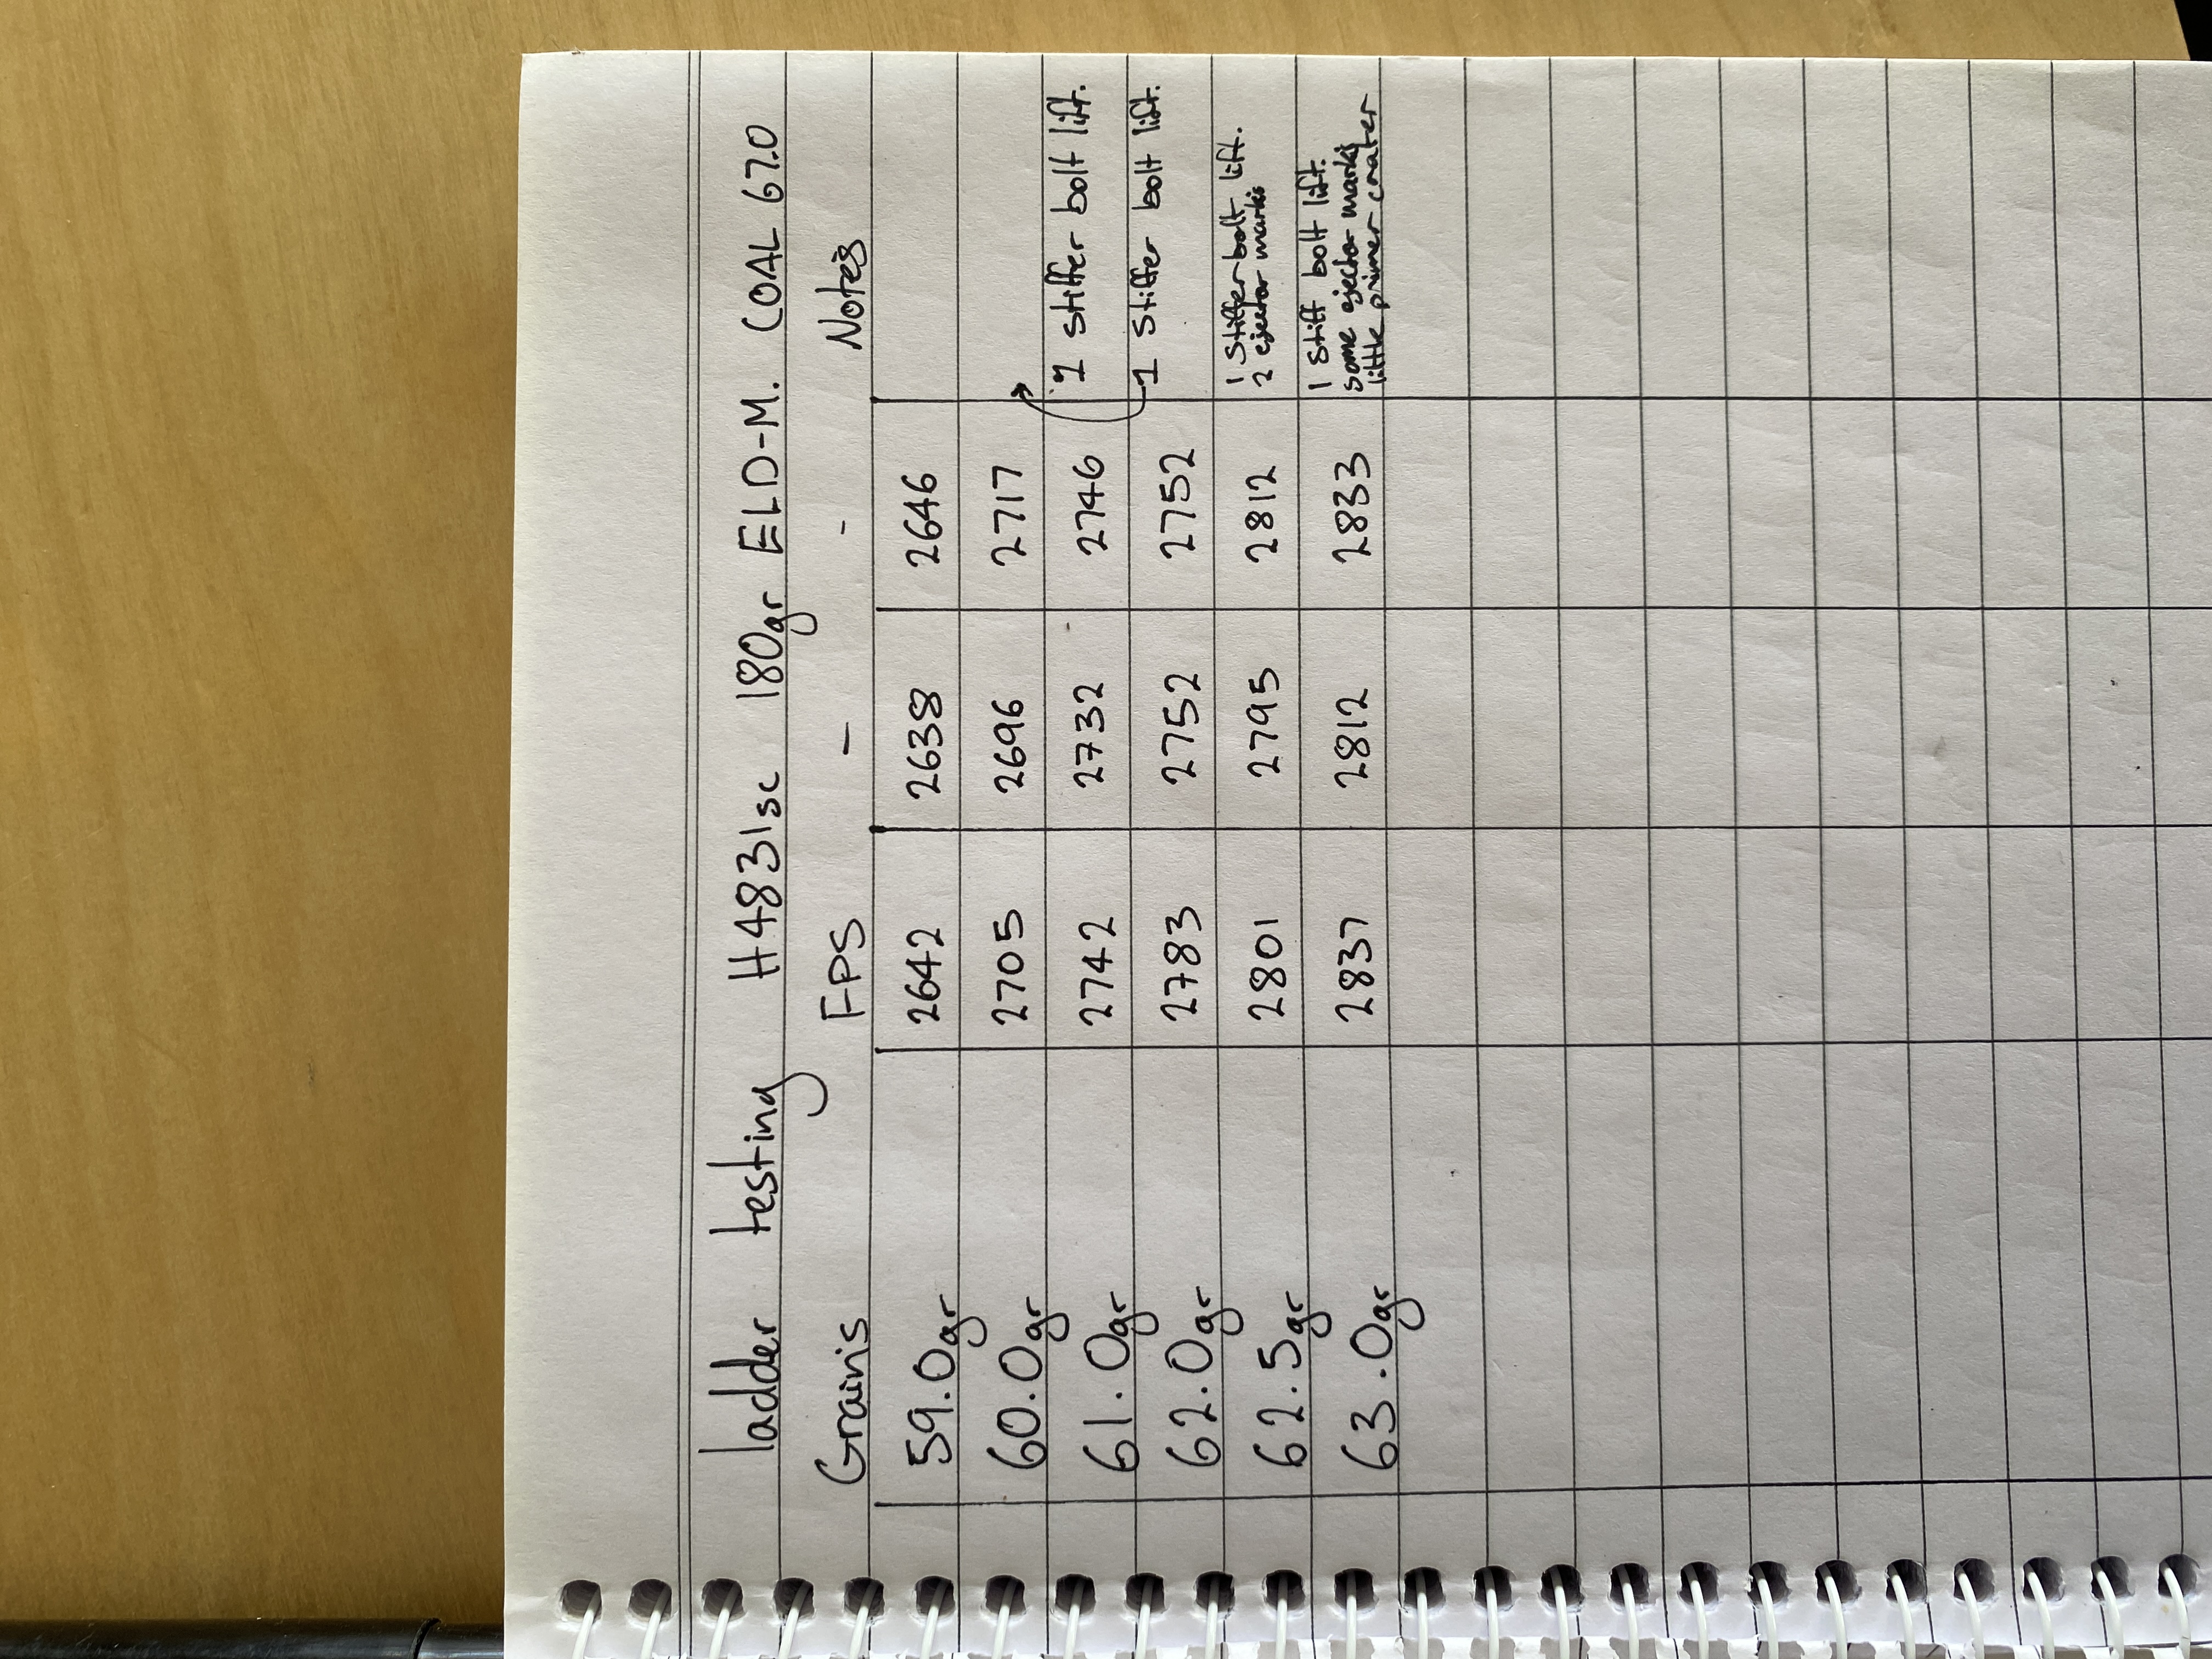 ladder testing H4831sc 180gr ELD-M. COAL 67.0
Grains FPS - - Notes
59.0gr 2642 2638 2646
60.0gr 2705 2696 2717
61.0gr 2742 2732 2746 1 stiffer bolt lift.
62.0gr 2783 2752 2752 1 stiffer bolt lift.
62.5gr 2801 2795 2812 1 stiffer bolt lift.
2 ejector marks
63.0gr 2837 2812 2833 1 stiff bolt lift.
some ejector marks
little primer crater